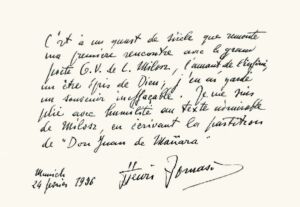 C'est à un quart de siècle que remonte
ma première rencontre avec le grand
poète O.V. de L. Milosz, l'amant de l'infini,
un être épris de Dieu; j'en ai gardé
un souvenir ineffaçable. Je me suis
plié avec humilité au texte admirable
de Milosz, en écrivant la partition
de "Don Juan de Mañara"
Munich
24 février 1956
Henri Tomasi